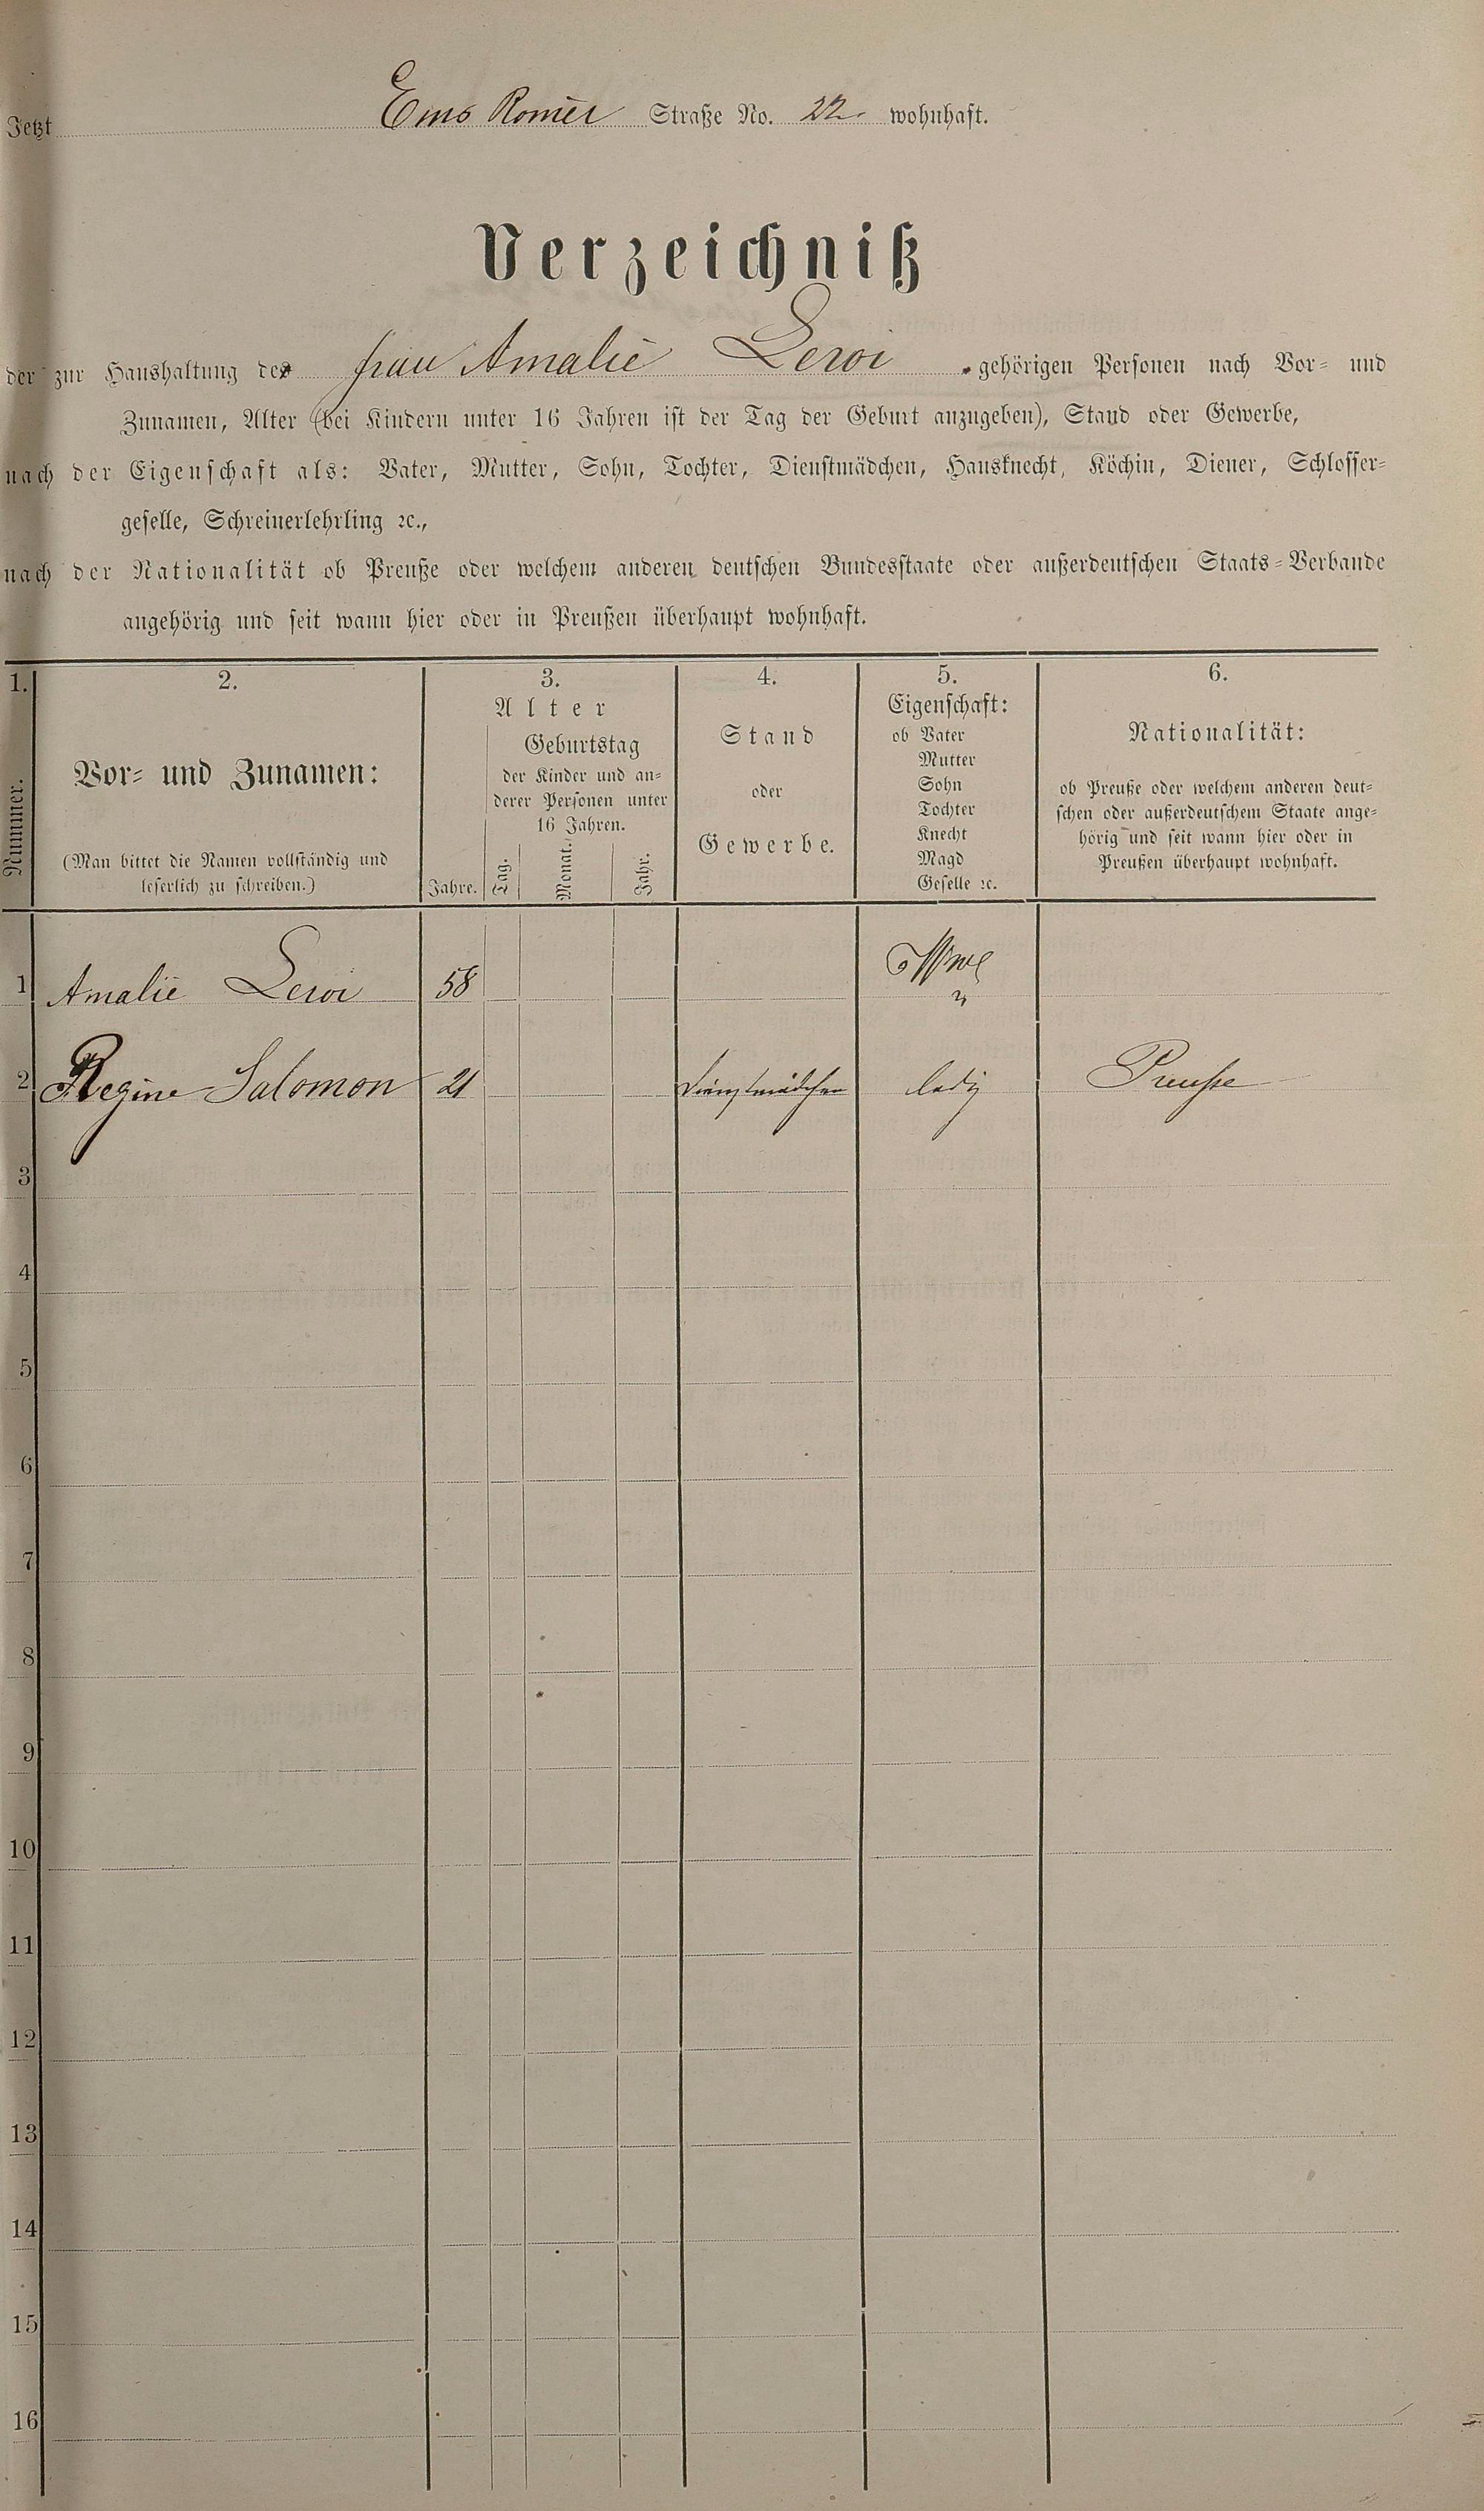 Jetzt Ems Römer Straße No. 22. wohnhaft.
Verzeichniß
der zur Haushaltung der Frau Amalie Leroi gehörigen Personen nach Vor- und
Zunamen, Alter (bei Kindern unter 16 Jahren ist der Tag der Geburt anzugeben), Stand oder Gewerbe,
nach der Eigenschaft als: Vater, Mutter, Sohn, Tochter, Dienstmädchen, Hausknecht, Köchin, Diener, Schlosser-
geselle, Schreinerlehrling ꝛc.,
nach der Nationalität ob Preuße oder welchem anderen deutschen Bundesstaate oder außerdeutschen Staats-Verbande
angehörig und seit wann hier oder in Preußen überhaupt wohnhaft.
1.
Nummer.
2.
Vor- und Zunamen:
(Man bittet die Namen vollständig und
leserlich zu schreiben.)
3.
Alter
Geburtstag
der Kinder und an-
derer Personen unter
16 Jahren.
Jahre. Tag. Monat. Jahr.
4.
Stand
oder
Gewerbe.
5.
Eigenschaft:
ob Vater
Mutter
Sohn
Tochter
Knecht
Magd
Geselle ꝛc.
6.
Nationalität:
ob Preuße oder welchem anderen deut-
schen oder außerdeutschem Staate ange-
hörig und seit wann hier oder in
Preußen überhaupt wohnhaft.
1 Amalie Leroi 58 Wwe
2 Regine Salomon 21 Dienstmädchen ledig Preuße
3
4
5
6
7
8
9
10
11
12
13
14
15
16